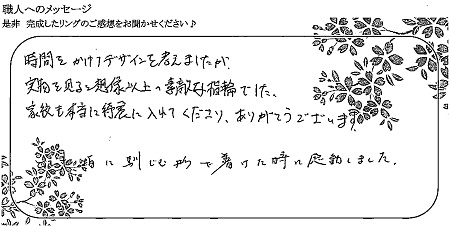 職人へのメッセージ
是非 完成したリングのご感想をお聞かせください♪
時間をかけてデザインを考えましたが、
実物を見ると想像以上の素敵な指輪でした。
家族も本当に綺麗に入れてくださり、ありがとうございます。
指に馴じむ形で着けた時に感動しました。